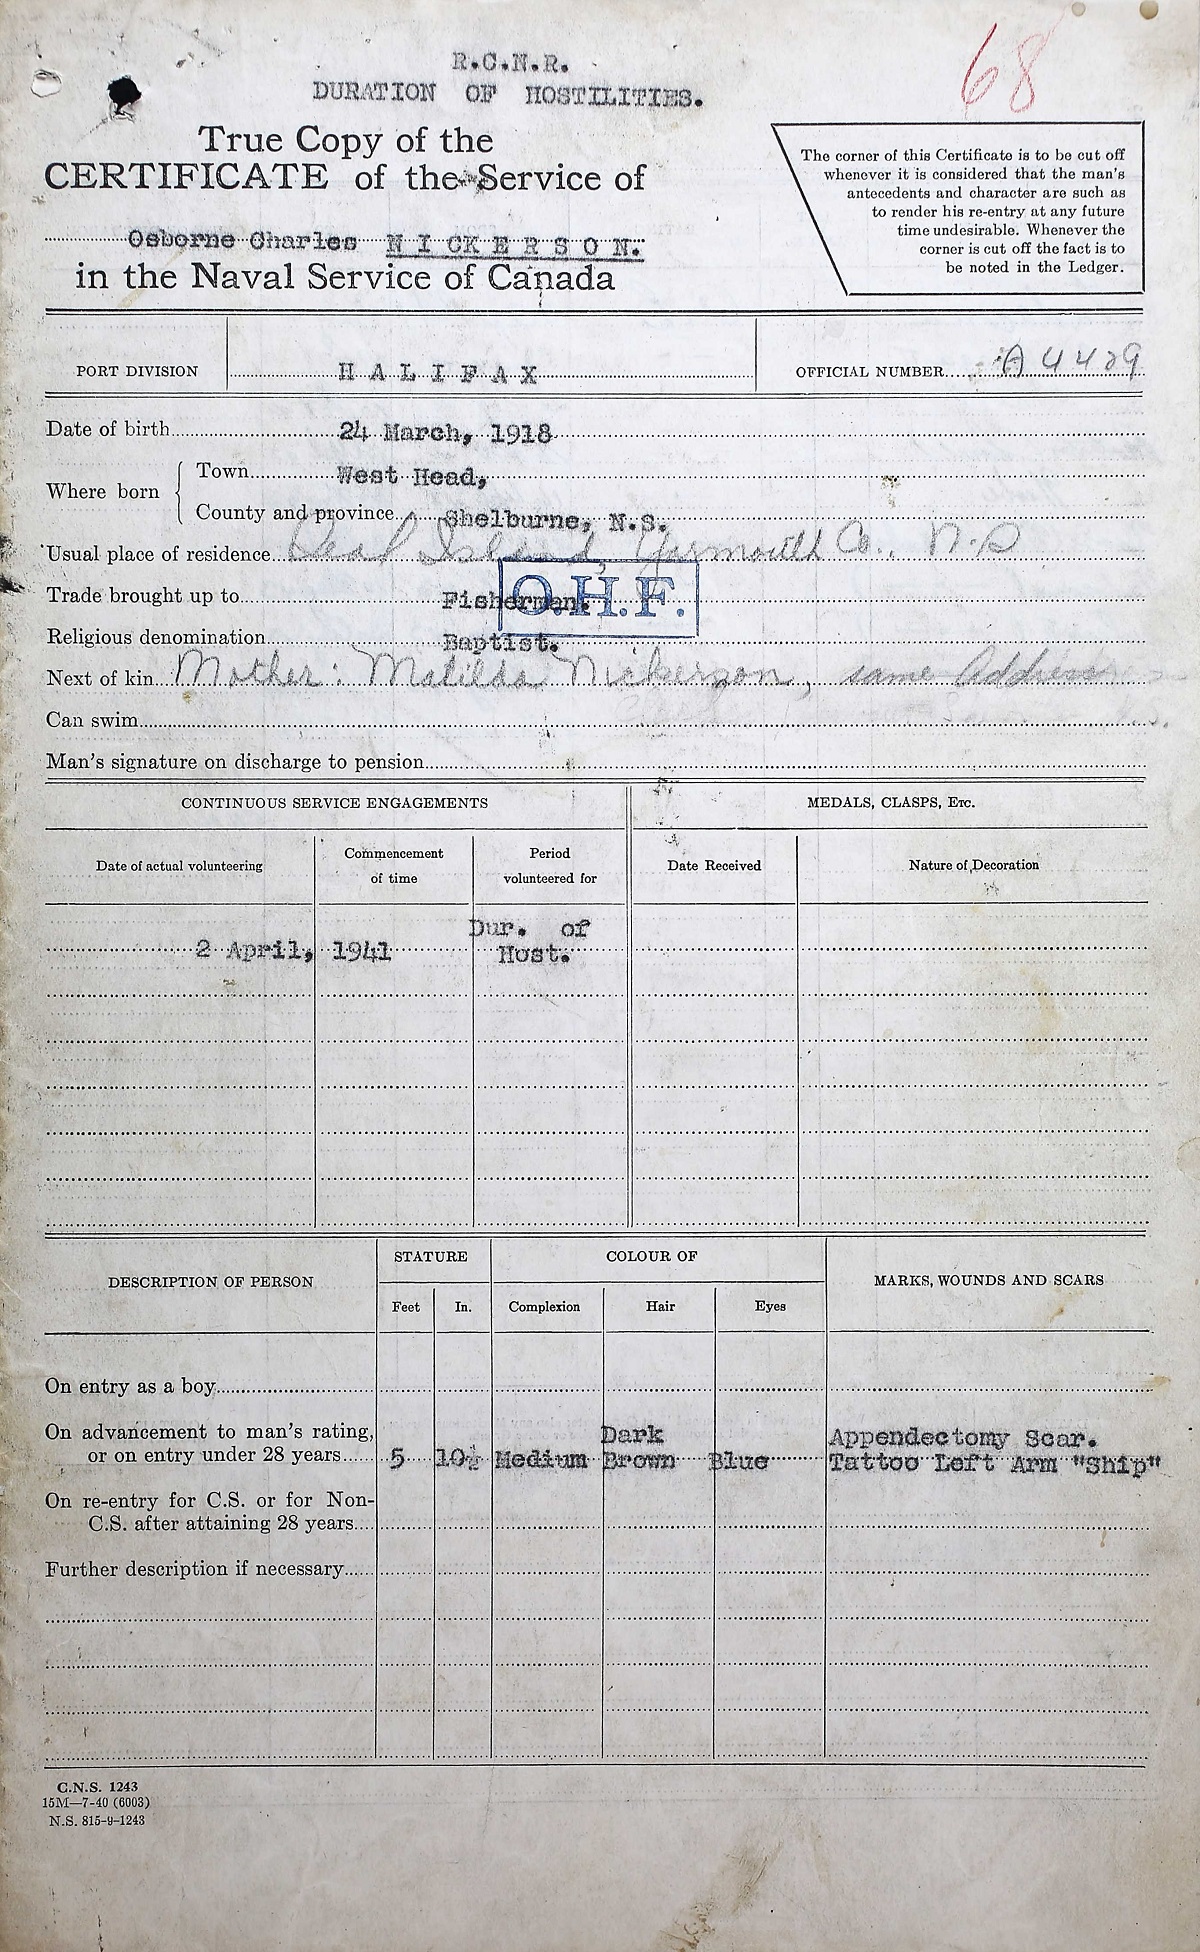 68
R.C.N.R.
DURATION OF HOSTILITIES.
True Copy of the
CERTIFICATE of the Service of
Osborne Charles NICKERSON.
in the Naval Service of Canada
The corner of this Certificate is to be cut off
whenever it is considered that the man's
antecedents and character are such as
to render his re-entry at any future
time undesirable. Whenever the
corner is cut off the fact is to
be noted in the Ledger.
PORT DIVISION HALIFAX OFFICIAL NUMBER A4429
Date of birth 24 March, 1918
Where born Town West Head,
County and province Shelburne, N.S.
Usual place of residence Island, Yarmouth Co., N.S
Trade brought up to Fisherman.
O.H.F.
Religious denomination Baptist.
Next of kin Mother: Matilda Nickerson, same Address
Can swim
Man's signature on discharge to pension
CONTINUOUS SERVICE ENGAGEMENTS MEDALS, CLASPS, Etc.
Date of actual volunteering Commencement of time Period volunteered for Date Received Nature of Decoration
2 April, 1941 Dur. of Host.
DESCRIPTION OF PERSON STATURE COLOUR OF MARKS, WOUNDS AND SCARS
Feet In. Complexion Hair Eyes
On entry as a boy
On advancement to man's rating, Dark Appendectomy Scar.
or on entry under 28 years 5 10½ Medium Brown Blue Tattoo Left Arm "Ship"
On re-entry for C.S. or for Non-
C.S. after attaining 28 years
Further description if necessary
C.N.S. 1243
15M—7-40 (6003)
N.S. 815-9-1243